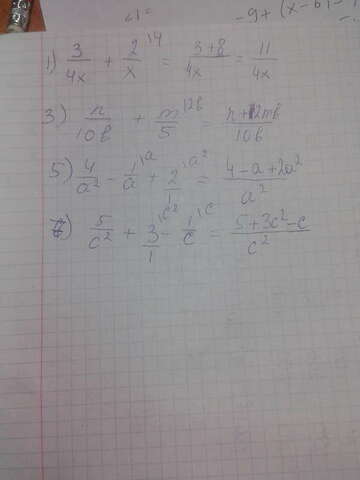 -9+(x-6)-
1) 3/4x + 2/x ^\4 = 3+8/4x = 11/4x
3) n/10b + m/5 ^\2b = n+2mb/10b
5) 4/a² - 1/a ^\a + 2/1 ^\a² = 4-a+2a²/a²
7) 5/c² + 3/1 ^\c² - 1/c ^\c = 5+3c²-c/c²